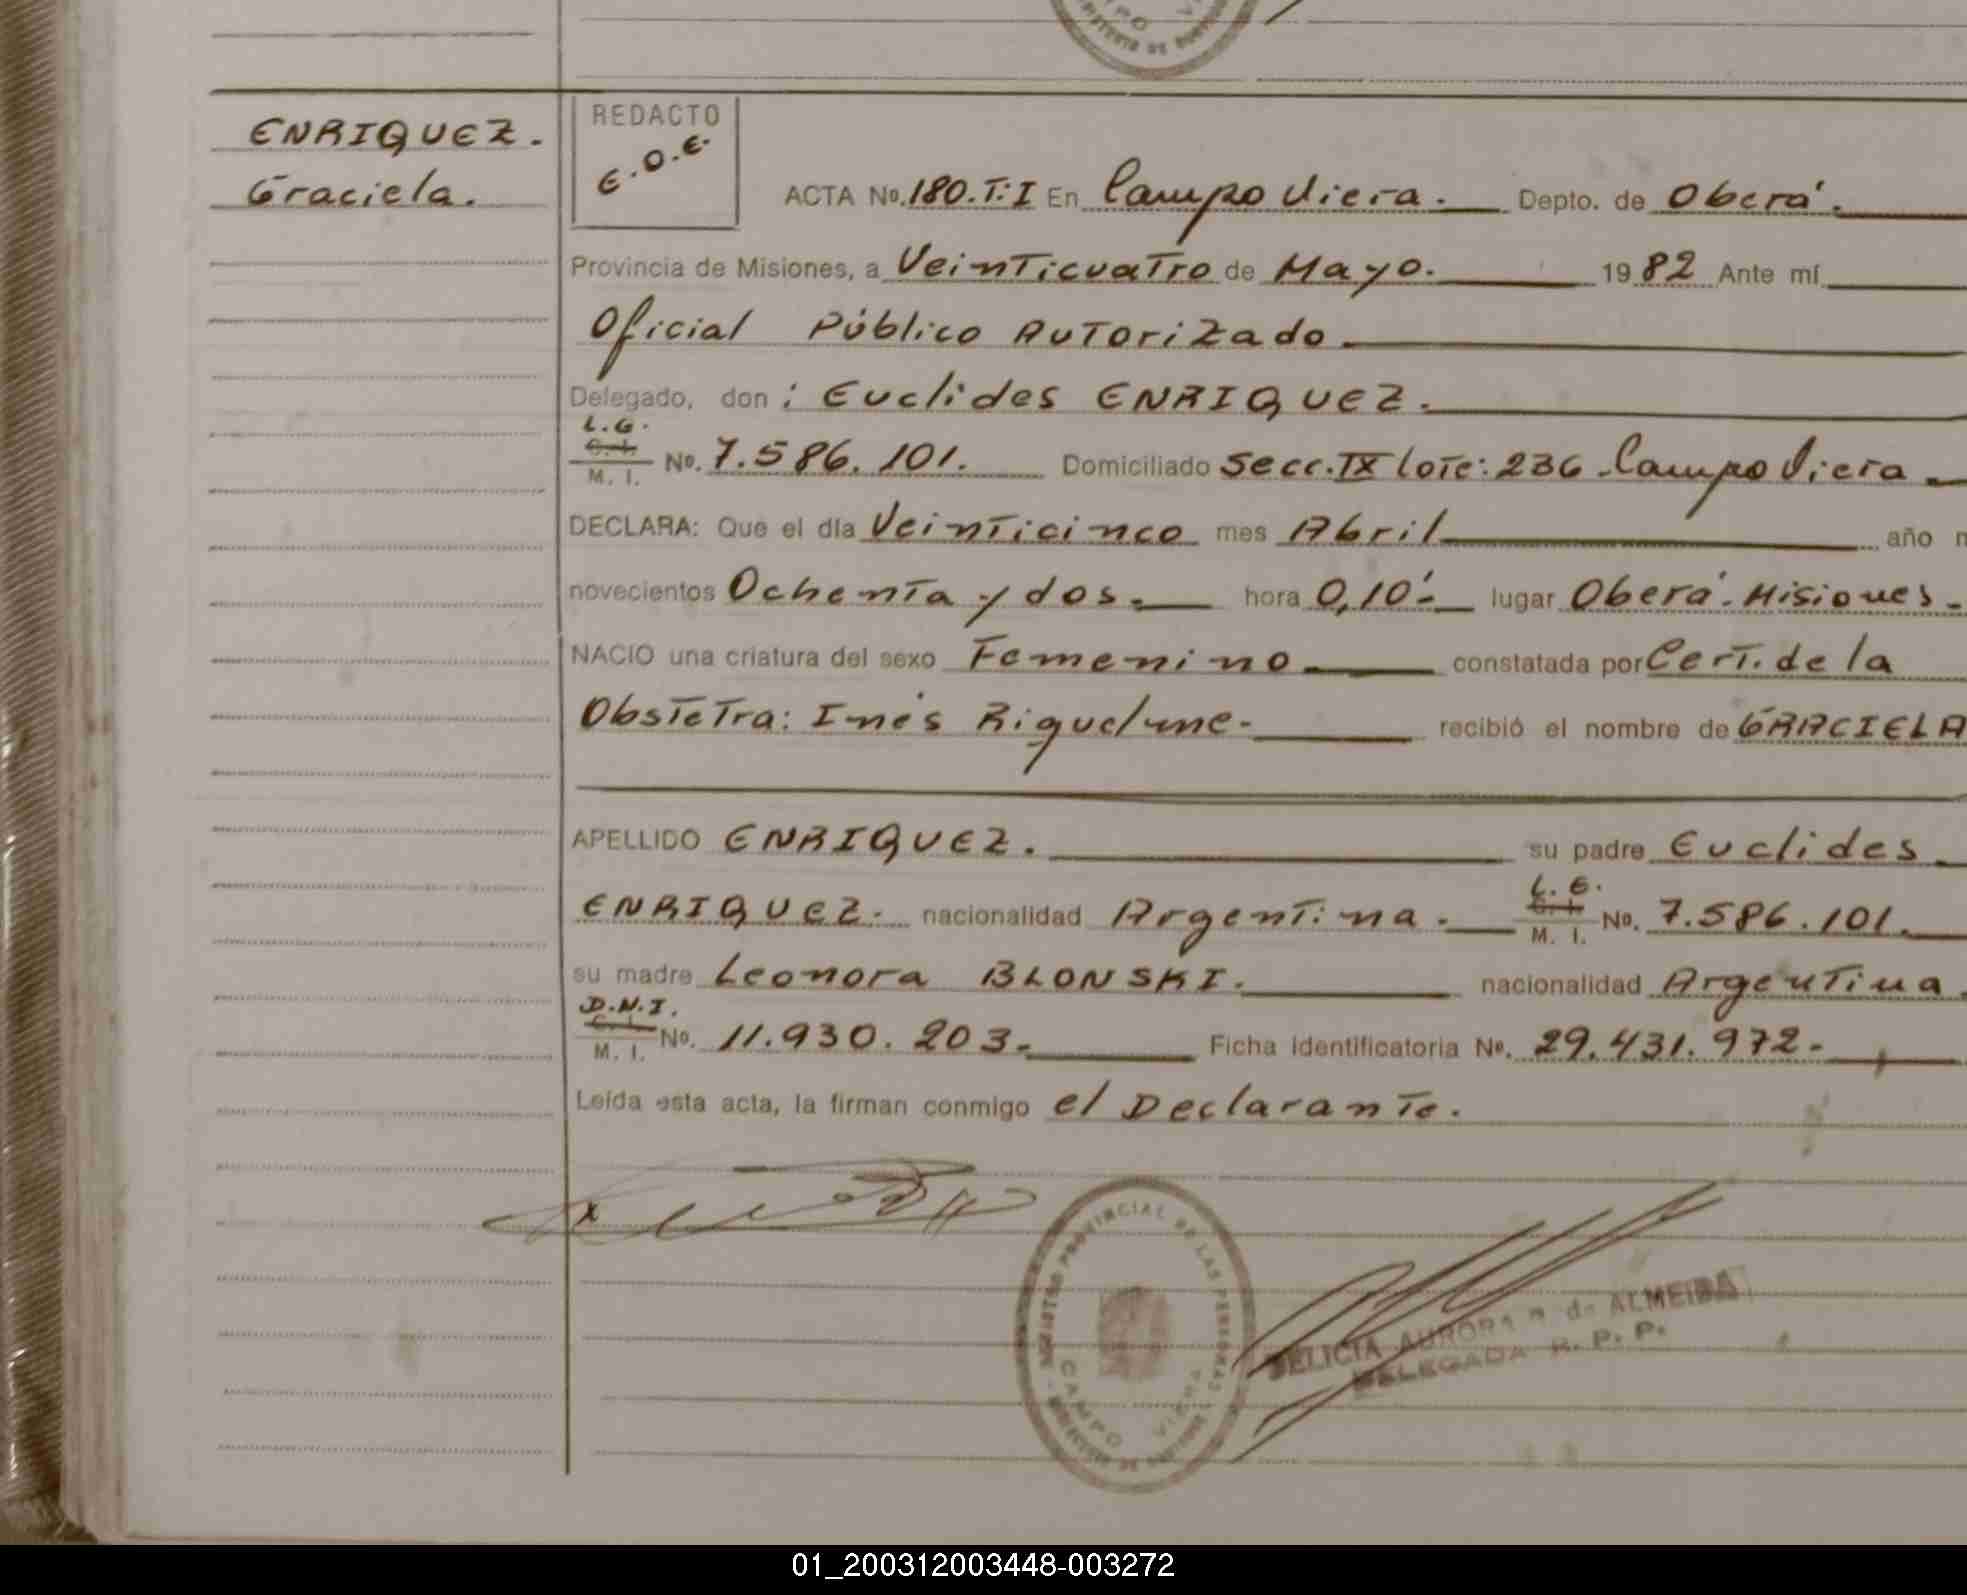 ENRIQUEZ.
Graciela.
REDACTO
E.O.E.
ACTA No. 180.T:I En Campo Viera. Depto. de Oberá.
Provincia de Misiones, a Veinticuatro de Mayo. 1982 Ante mí
Oficial Público Autorizado
Delegado, don: Euclides ENRIQUEZ.
L.G.
C.I.
M. I. No. 7.586.101. Domiciliado Secc.IX Lote: 236 Campo Viera
DECLARA: Que el día Veinticinco mes Abril año
novecientos Ochenta y dos. hora 0,10'. lugar Oberá. Misiones.
NACIO una criatura del sexo Femenino constatada por Cert. de la
Obstetra: Inés Riquelme. recibió el nombre de GRACIELA
APELLIDO ENRIQUEZ. su padre Euclides
L. E.
ENRIQUEZ. nacionalidad Argentina. C. I. M. I. No. 7.586.101.
su madre Leonora BLONSKI. nacionalidad Argentina.
D.N.I.
C. I.
M. I. No. 11.930.203. Ficha Identificatoria No. 29.431.972.
Leída esta acta, la firman conmigo el Declarante.
REGISTRO PROVINCIAL DE LAS PERSONAS
CAMPO VIERA
FELICIA AURORA de ALMEIDA
DELEGADA R. P. P.
01_200312003448-003272